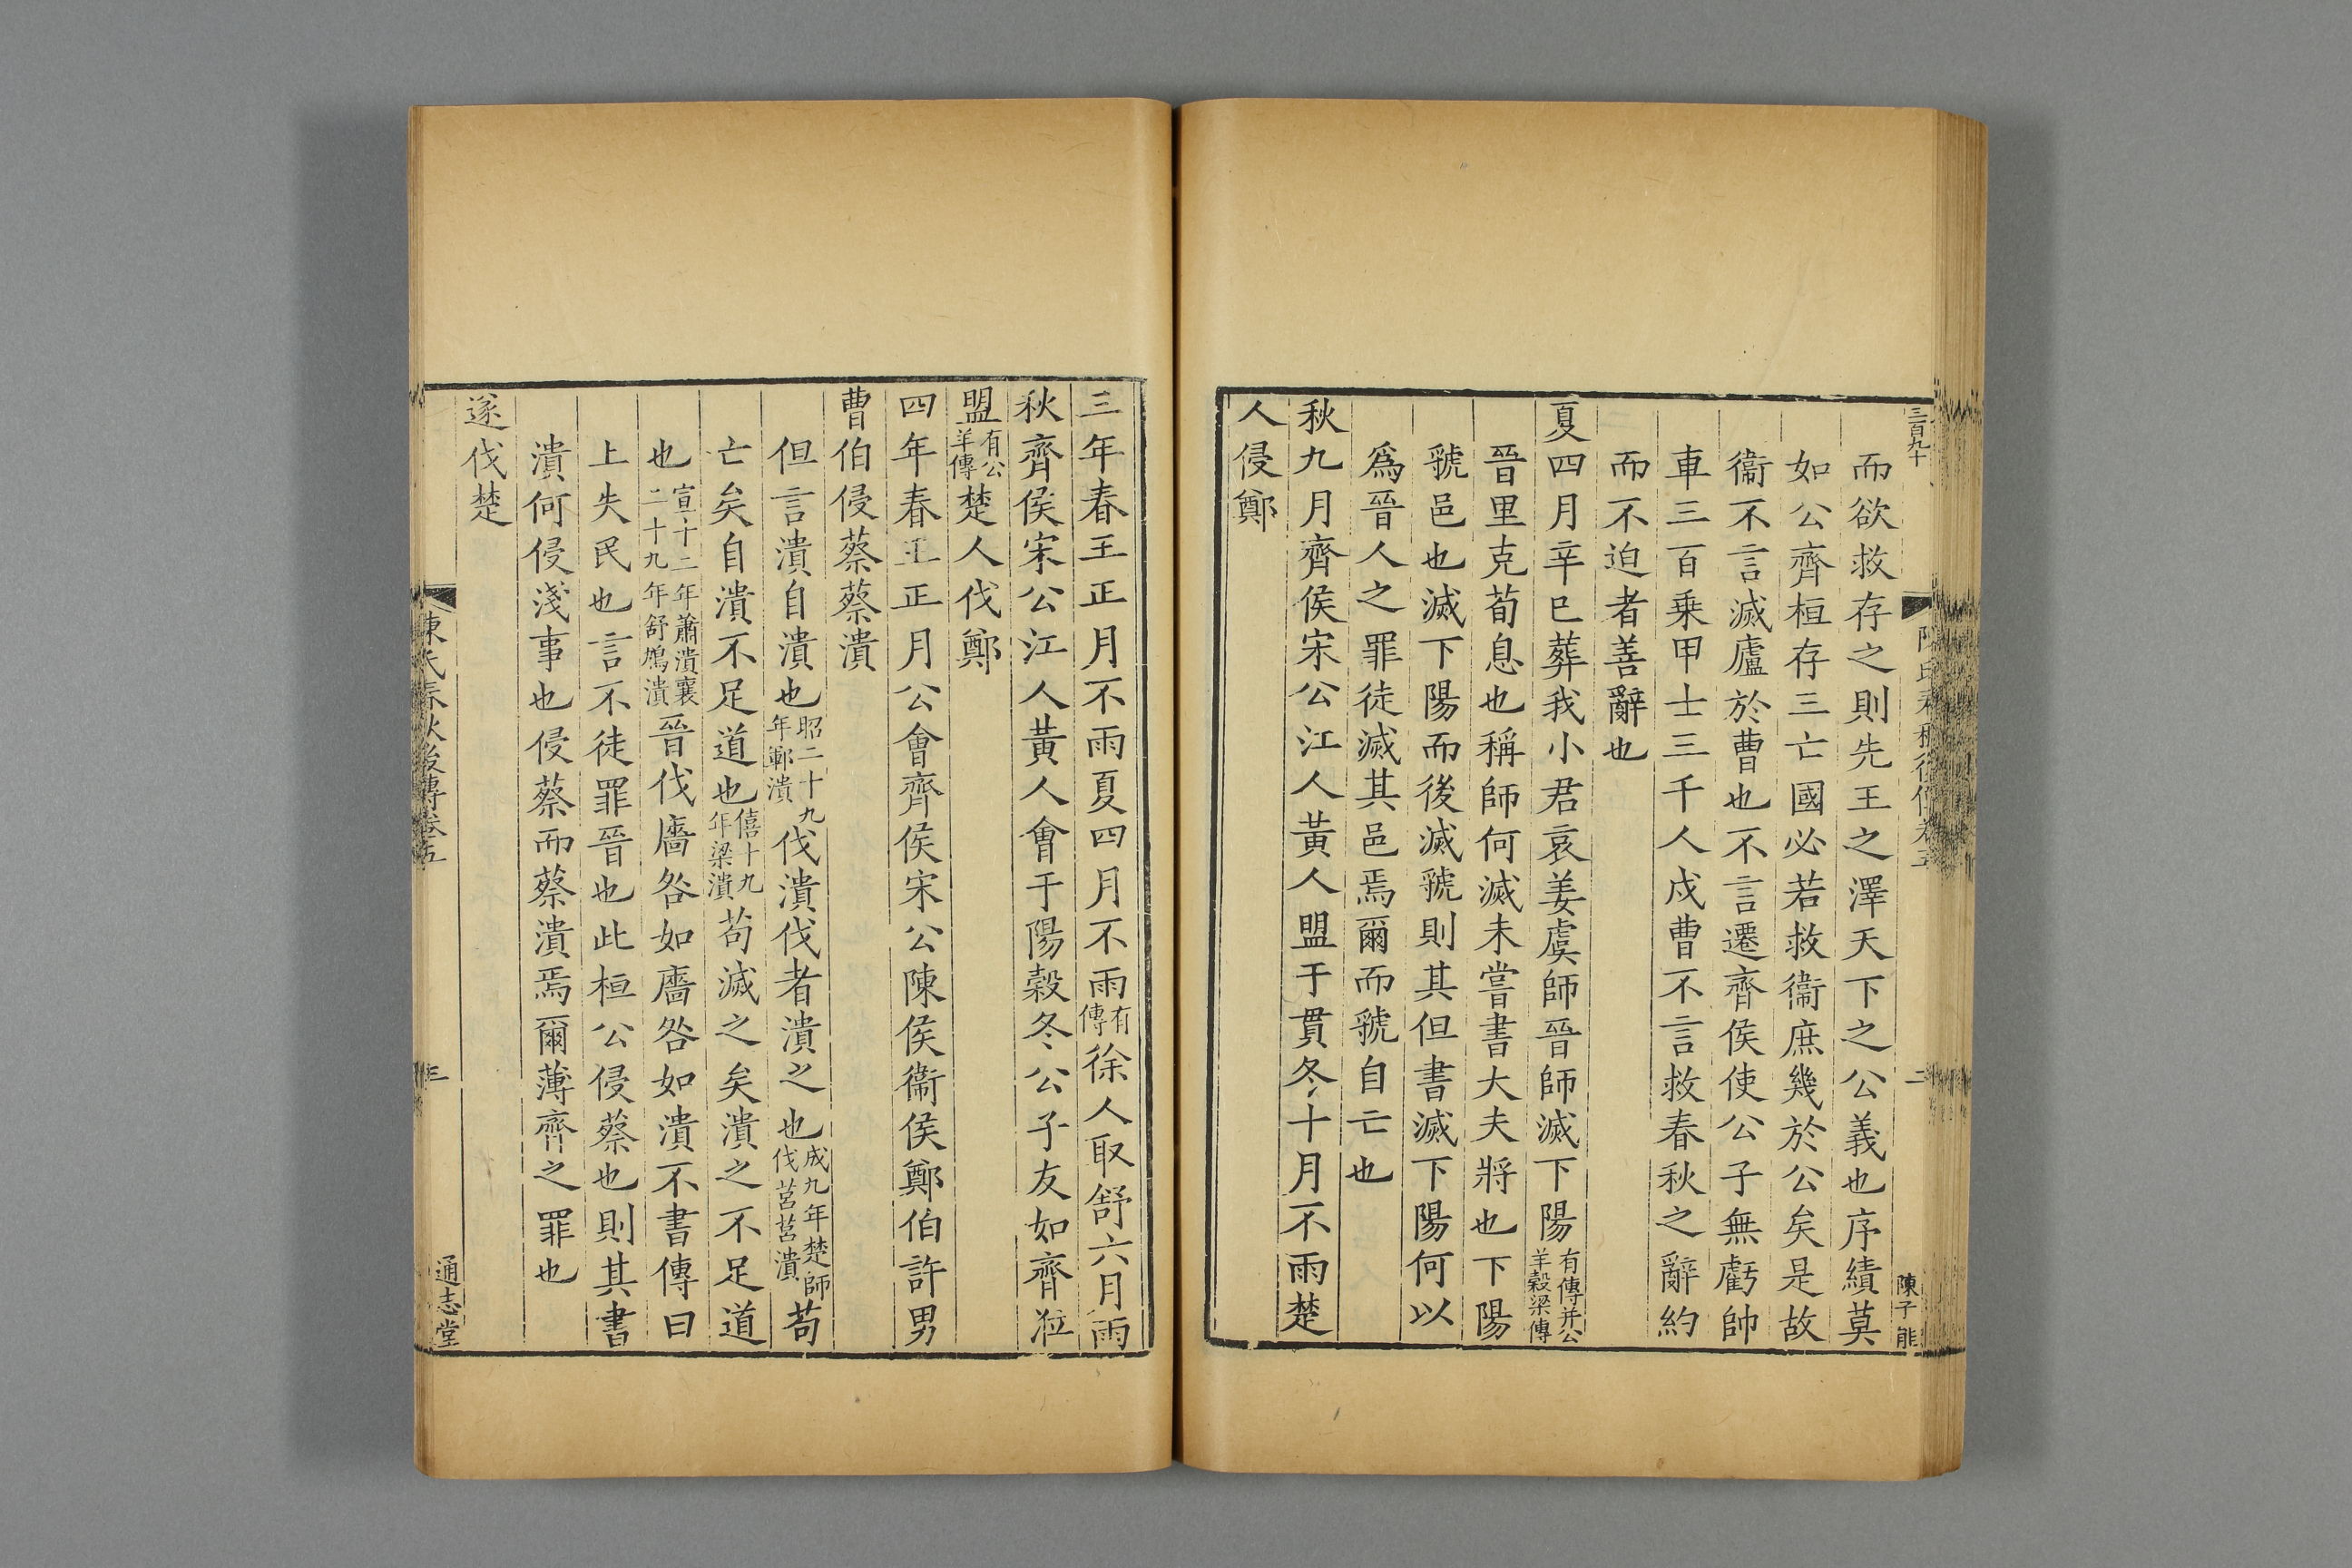 三百九十
陳子能
二
而欲救存之則先王之澤天下之公義也序績莫
如公齊桓存三亡國必若救衞庶幾於公矣是故
衞不言滅廬於曹也不言遷齊侯使公子無虧帥
車三百乗甲士三千人戍曹不言救春秋之辭約
而不迫者善辭也
夏四月辛巳葬我小君哀姜虞師晉師滅下陽有傳并公羊穀梁傳
晉里克荀息也稱師何滅未嘗書大夫將也下陽
虢邑也滅下陽而後滅虢則其但書滅下陽何以
爲晉人之罪徒滅其邑焉爾而虢自亡也
秋九月齊侯宋公江人黃人盟于貫冬十月不雨楚
人侵鄭
三年春王正月不雨夏四月不雨有傳徐人取舒六月雨
秋齊侯宋公江人黃人會于陽穀冬公子友如齊涖
盟有公羊傳楚人伐鄭
四年春王正月公會齊侯宋公陳侯衞侯鄭伯許男
曹伯侵蔡蔡潰
但言潰自潰也昭二十九年鄆潰伐潰伐者潰之也成九年楚師伐莒莒潰苟
亡矣自潰不足道也僖十九年梁潰苟滅之矣潰之不足道
也宣十二年蕭潰襄二十九年舒鳩潰晉伐廧咎如廧咎如潰不書傳曰
上失民也言不徒罪晉也此桓公侵蔡也則其書
潰何侵淺事也侵蔡而蔡潰焉爾薄齊之罪也
遂伐楚
陳氏春秋後傳卷五
三
通志堂